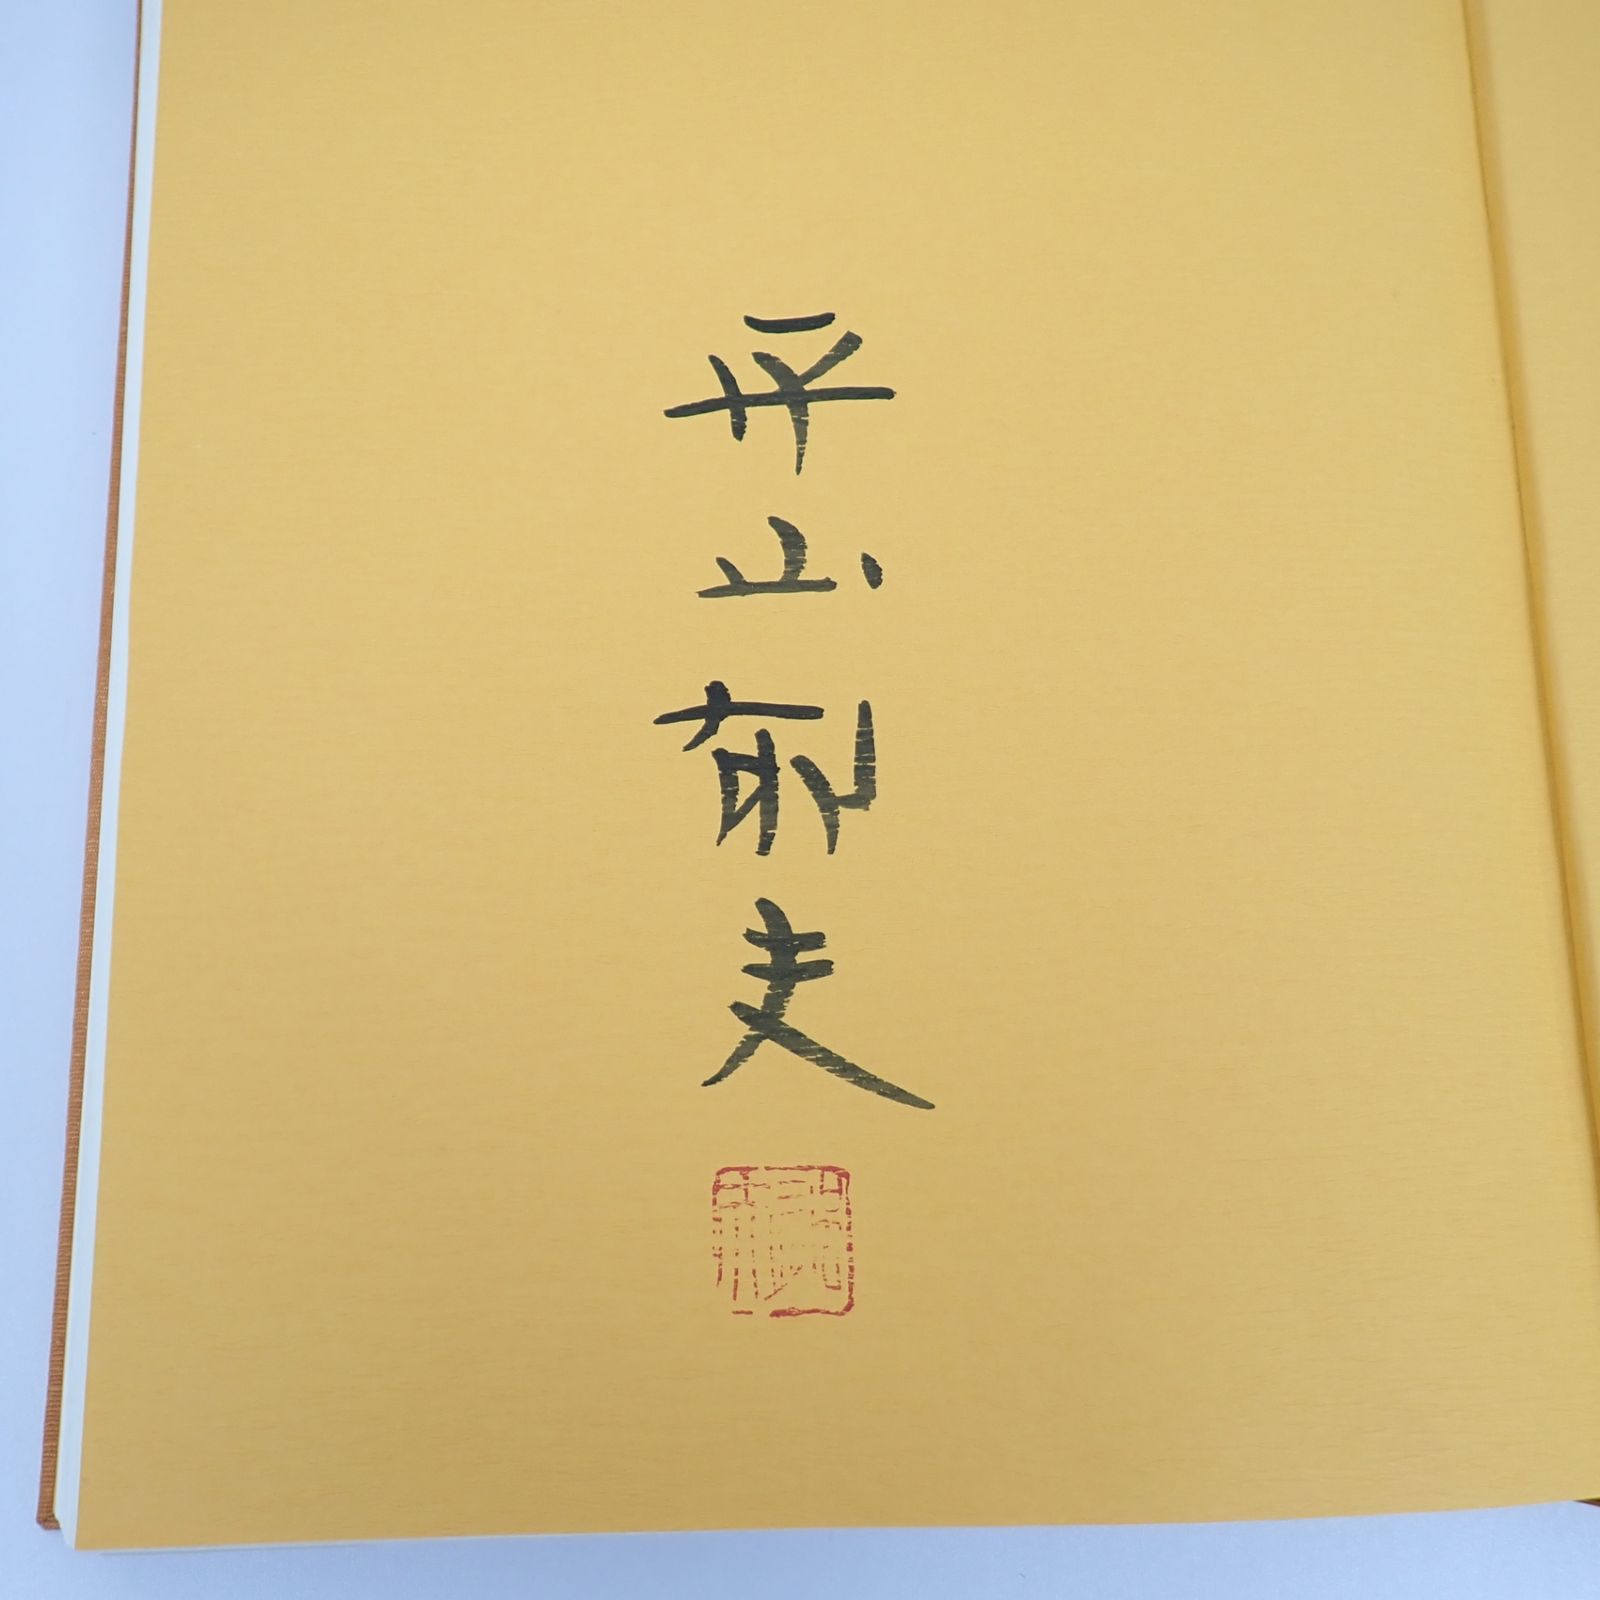 平山郁夫